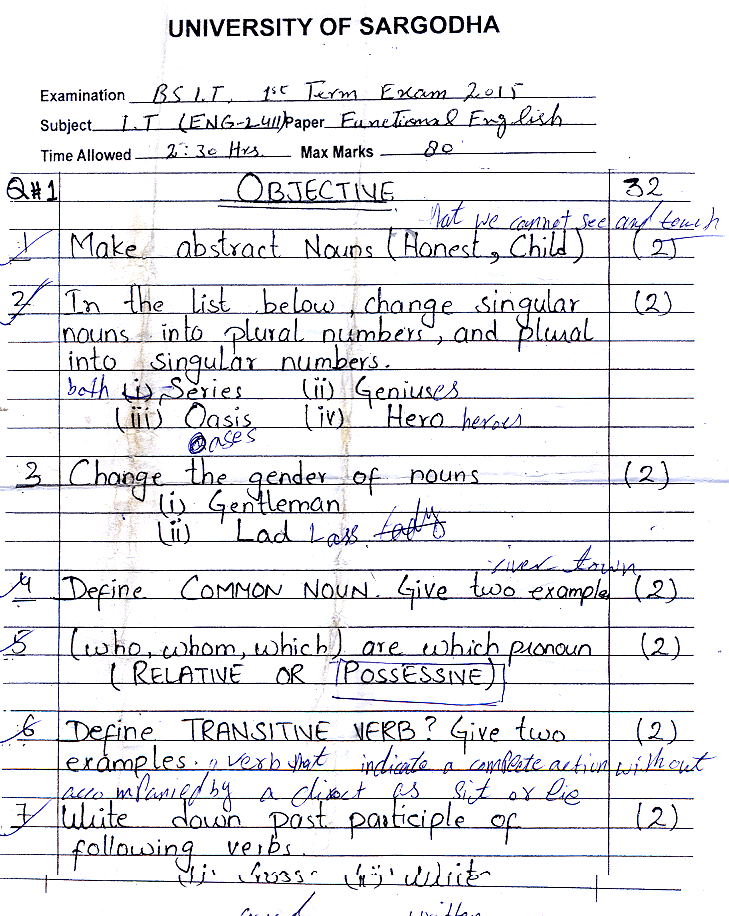 UNIVERSITY OF SARGODHA
Examination BS I.T, 1st Term Exam 2015
Subject I.T (ENG-2411) Paper Functional English
Time Allowed 2:30 Hrs. Max Marks 80
Q#1 OBJECTIVE 32
that we cannot see and touch
1 Make abstract Nouns (Honest, Child) (2)
2 In the list below, change singular (2)
nouns into plural numbers, and plural
into singular numbers.
both (i) Series (ii) Geniuses
(iii) Oasis (iv) Hero heroes
Oases
3 Change the gender of nouns (2)
(i) Gentleman
(ii) Lad Lass Lady
river town
4 Define COMMON NOUN. Give two example (2)
5 (who, whom, which) are which pronoun (2)
(RELATIVE OR POSSESSIVE)
6 Define TRANSITIVE VERB? Give two (2)
examples. verb that indicate a complete action without
accompanied by a direct as sit or lie
7 Write down past participle of (2)
following verbs.
(i) (ii) Write
written